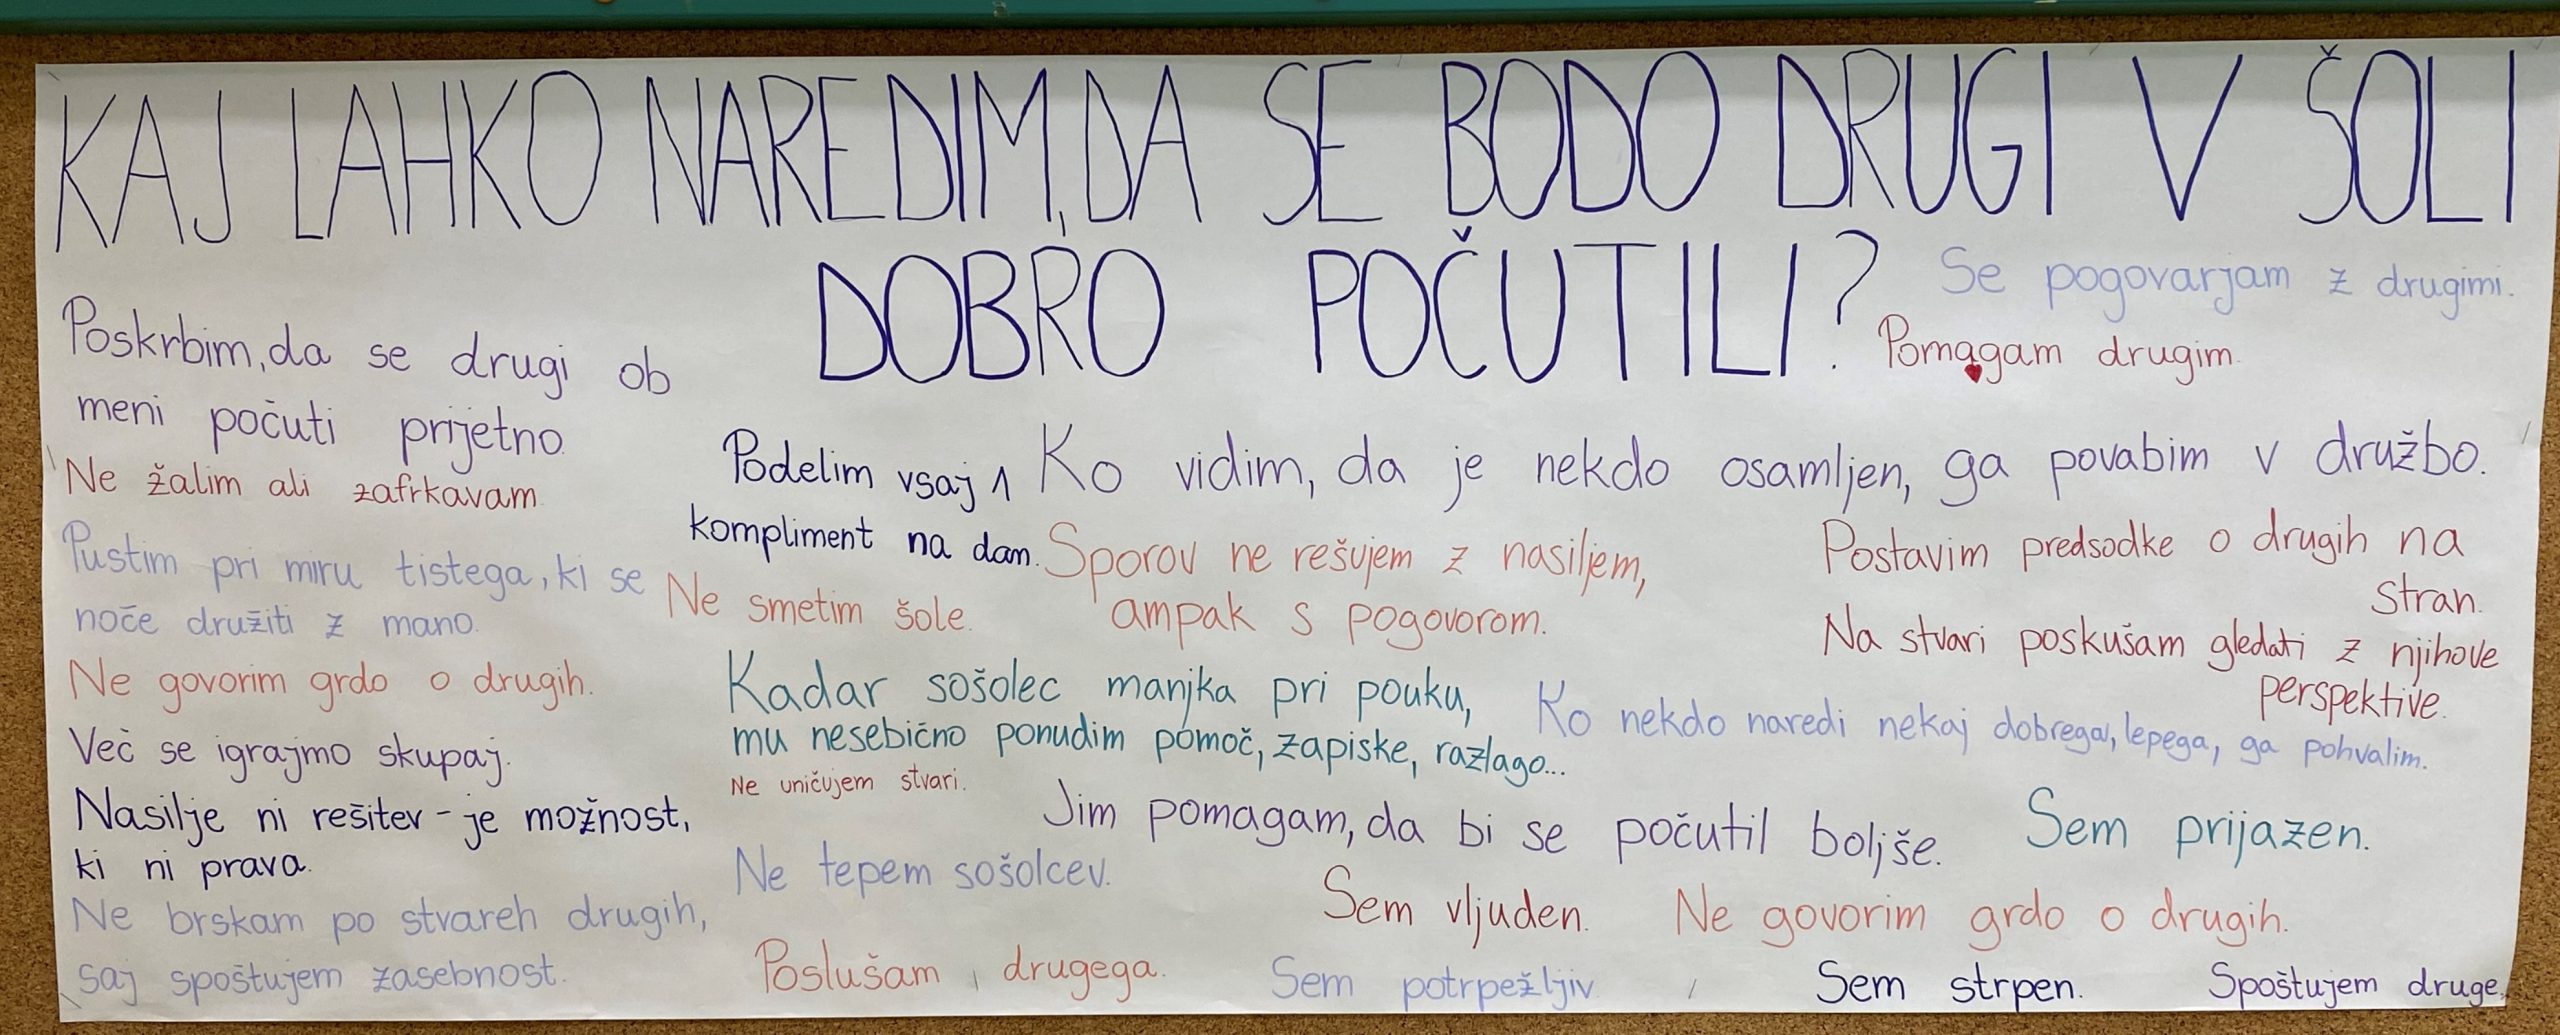 KAJ LAHKO NAREDIM, DA SE BODO DRUGI V ŠOLI
DOBRO POČUTILI?
Se pogovarjam z drugimi.
Pomagam drugim.
Poskrbim, da se drugi ob
meni počuti prijetno.
Ne žalim ali zafrkavam.
Pustim pri miru tistega, ki se
noče družiti z mano.
Ne govorim grdo o drugih.
Več se igrajmo skupaj.
Nasilje ni rešitev - je možnost,
ki ni prava.
Ne brskam po stvareh drugih,
saj spoštujem zasebnost.
Podelim vsaj 1
kompliment na dan.
Ko vidim, da je nekdo osamljen, ga povabim v družbo.
Sporov ne rešujem z nasiljem,
ampak s pogovorom.
Ne smetim šole.
Postavim predsodke o drugih na
stran.
Na stvari poskušam gledati z njihove
perspektive.
Kadar sošolec manjka pri pouku,
mu nesebično ponudim pomoč, zapiske, razlago...
Ko nekdo naredi nekaj dobrega, lepega, ga pohvalim.
Ne uničujem stvari.
Jim pomagam, da bi se počutil boljše.
Sem prijazen.
Ne tepem sošolcev.
Sem vljuden.
Ne govorim grdo o drugih.
Poslušam drugega.
Sem potrpežljiv
Sem strpen.
Spoštujem druge.